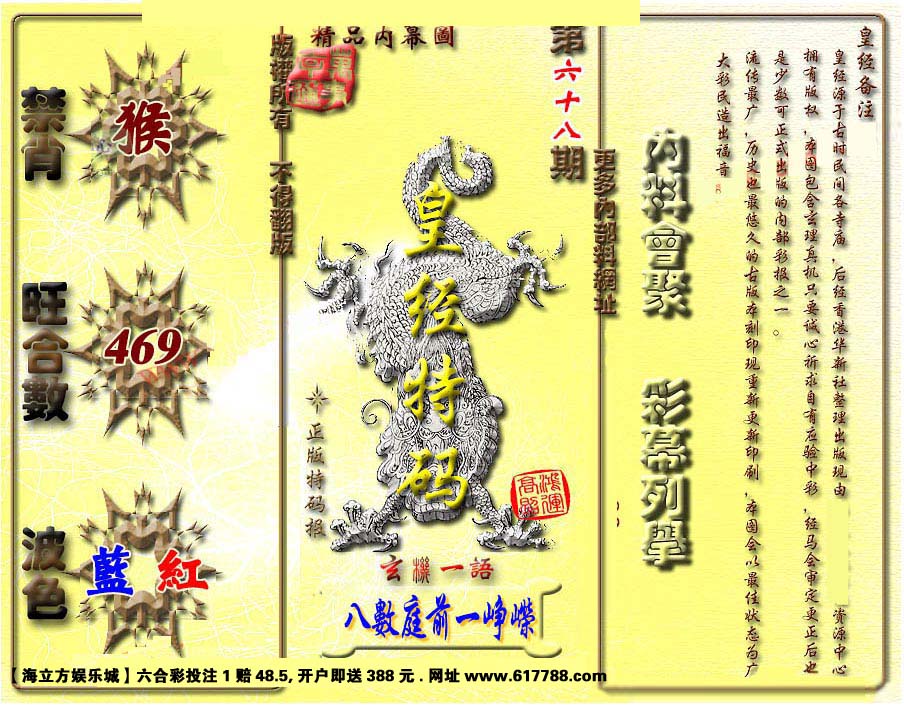 禁肖
猴
旺合數
469
波色
藍 紅
版權所有 不得翻版
精品内幕圖
第六十八期
皇经特码
正版特码报
鴻運高照
玄機一語
八數庭前一峥嵘
更多内部料網址
内料會聚 彩幕列舉
皇经备注
皇经源于古时民间各寺庙，后经香港华新社整理出版现由 资源中心
拥有版权，本图包含玄理真机只要诚心祈求自有应验中彩，经马会审定更正后也
是少数可正式出版的内部彩报之一。
流传最广，历史也最悠久的古版本刻印现重新更新印刷，本图会以最佳状态为广
大彩民造出福音
【海立方娱乐城】六合彩投注1赔48.5,开户即送388元.网址www.617788.com